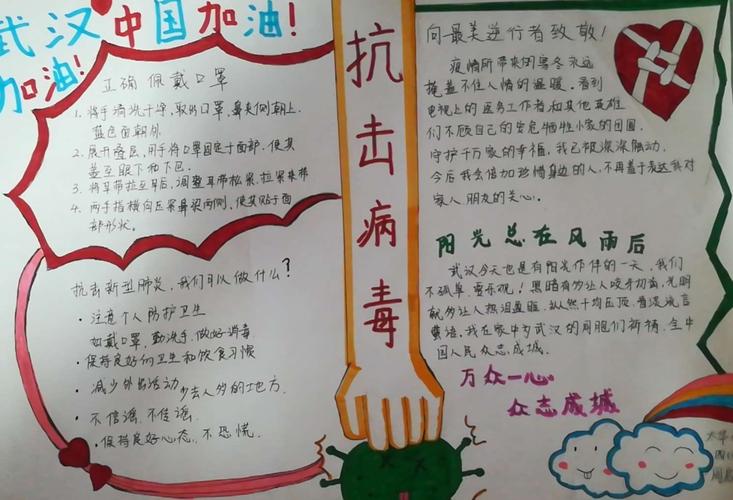 武汉加油!
中国加油!
正确佩戴口罩
1. 将手清洗干净,取出口罩,鼻夹侧朝上,
蓝色面朝外.
2. 展开叠层,用手将口罩固定于面部,使其
盖至眼下和下巴.
3. 将耳带拉至耳后,调整耳带松紧,拉紧束带
4. 两手指横向压紧鼻梁两侧,使其贴于面
部形状。
抗击新型肺炎,我们可以做什么?
· 注意个人防护卫生
如戴口罩,勤洗手,做好消毒.
· 保持良好的卫生和饮食习惯
· 减少外出活动 少去人多的地方.
· 不信谣,不传谣.
· 保持良好心态,不恐慌.
抗击病毒
向最美逆行者致敬!
疫情所带来的寒冬永远
掩盖不住人情的温暖,看到
电视上的医务工作者和其他英雄
们不顾自己的安危牺牲小家的团圆,
守护千万家的幸福,我已被深深触动.
今后我会倍加珍惜身边的人,不再羞于表达我对
家人,朋友的关心。
阳光总在风雨后
武汉今天也是有阳光作伴的一天,我们
不孤单,要乐观!黑暗有多让人咬牙切齿,光明
就多让人热泪盈眶,纵然千均压顶,昔漫流言
蜚语,我在家中为武汉的同胞们祈祷,全中
国人民众志成城.
万众一心
众志成城